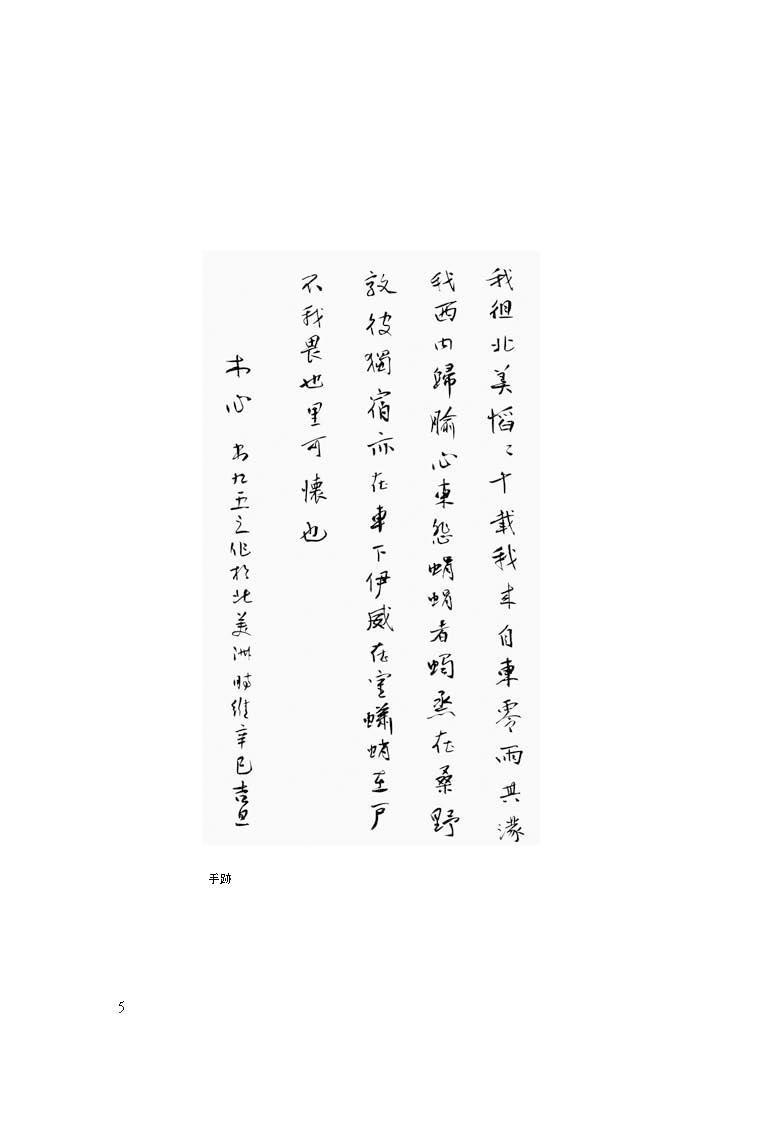 我徂北美慆〻十載我来自東零雨其濛
我西内歸腧心東怨蜎蜎者蠋烝在桑野
敦彼獨宿亦在車下伊威在室蠨蛸在戶
不我畏也里可懷也
木心 書九五之作於北美洲時維辛巳吉旦
手跡
5